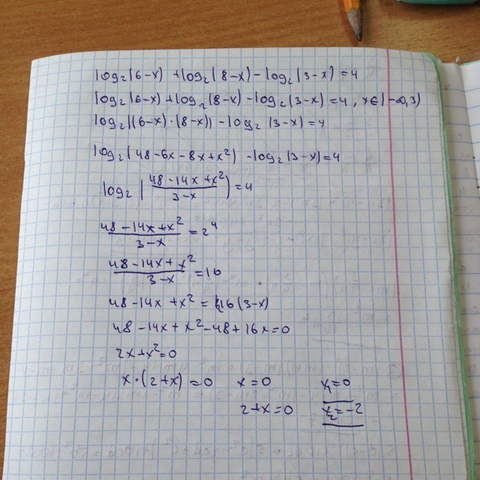 log₂(6-x) + log₂(8-x) - log₂(3-x) = 4
log₂(6-x) + log₂(8-x) - log₂(3-x) = 4, x∈(-∞, 3)
log₂((6-x)·(8-x)) - log₂(3-x) = 4
log₂(48-6x-8x+x²) - log₂(3-x) = 4
log₂((48-14x+x²)/(3-x)) = 4
(48-14x+x²)/(3-x) = 2⁴
(48-14x+x²)/(3-x) = 16
48-14x+x² = 16(3-x)
48-14x+x²-48+16x=0
2x+x²=0
x·(2+x)=0 x=0 x₁=0
2+x=0 x₂=-2